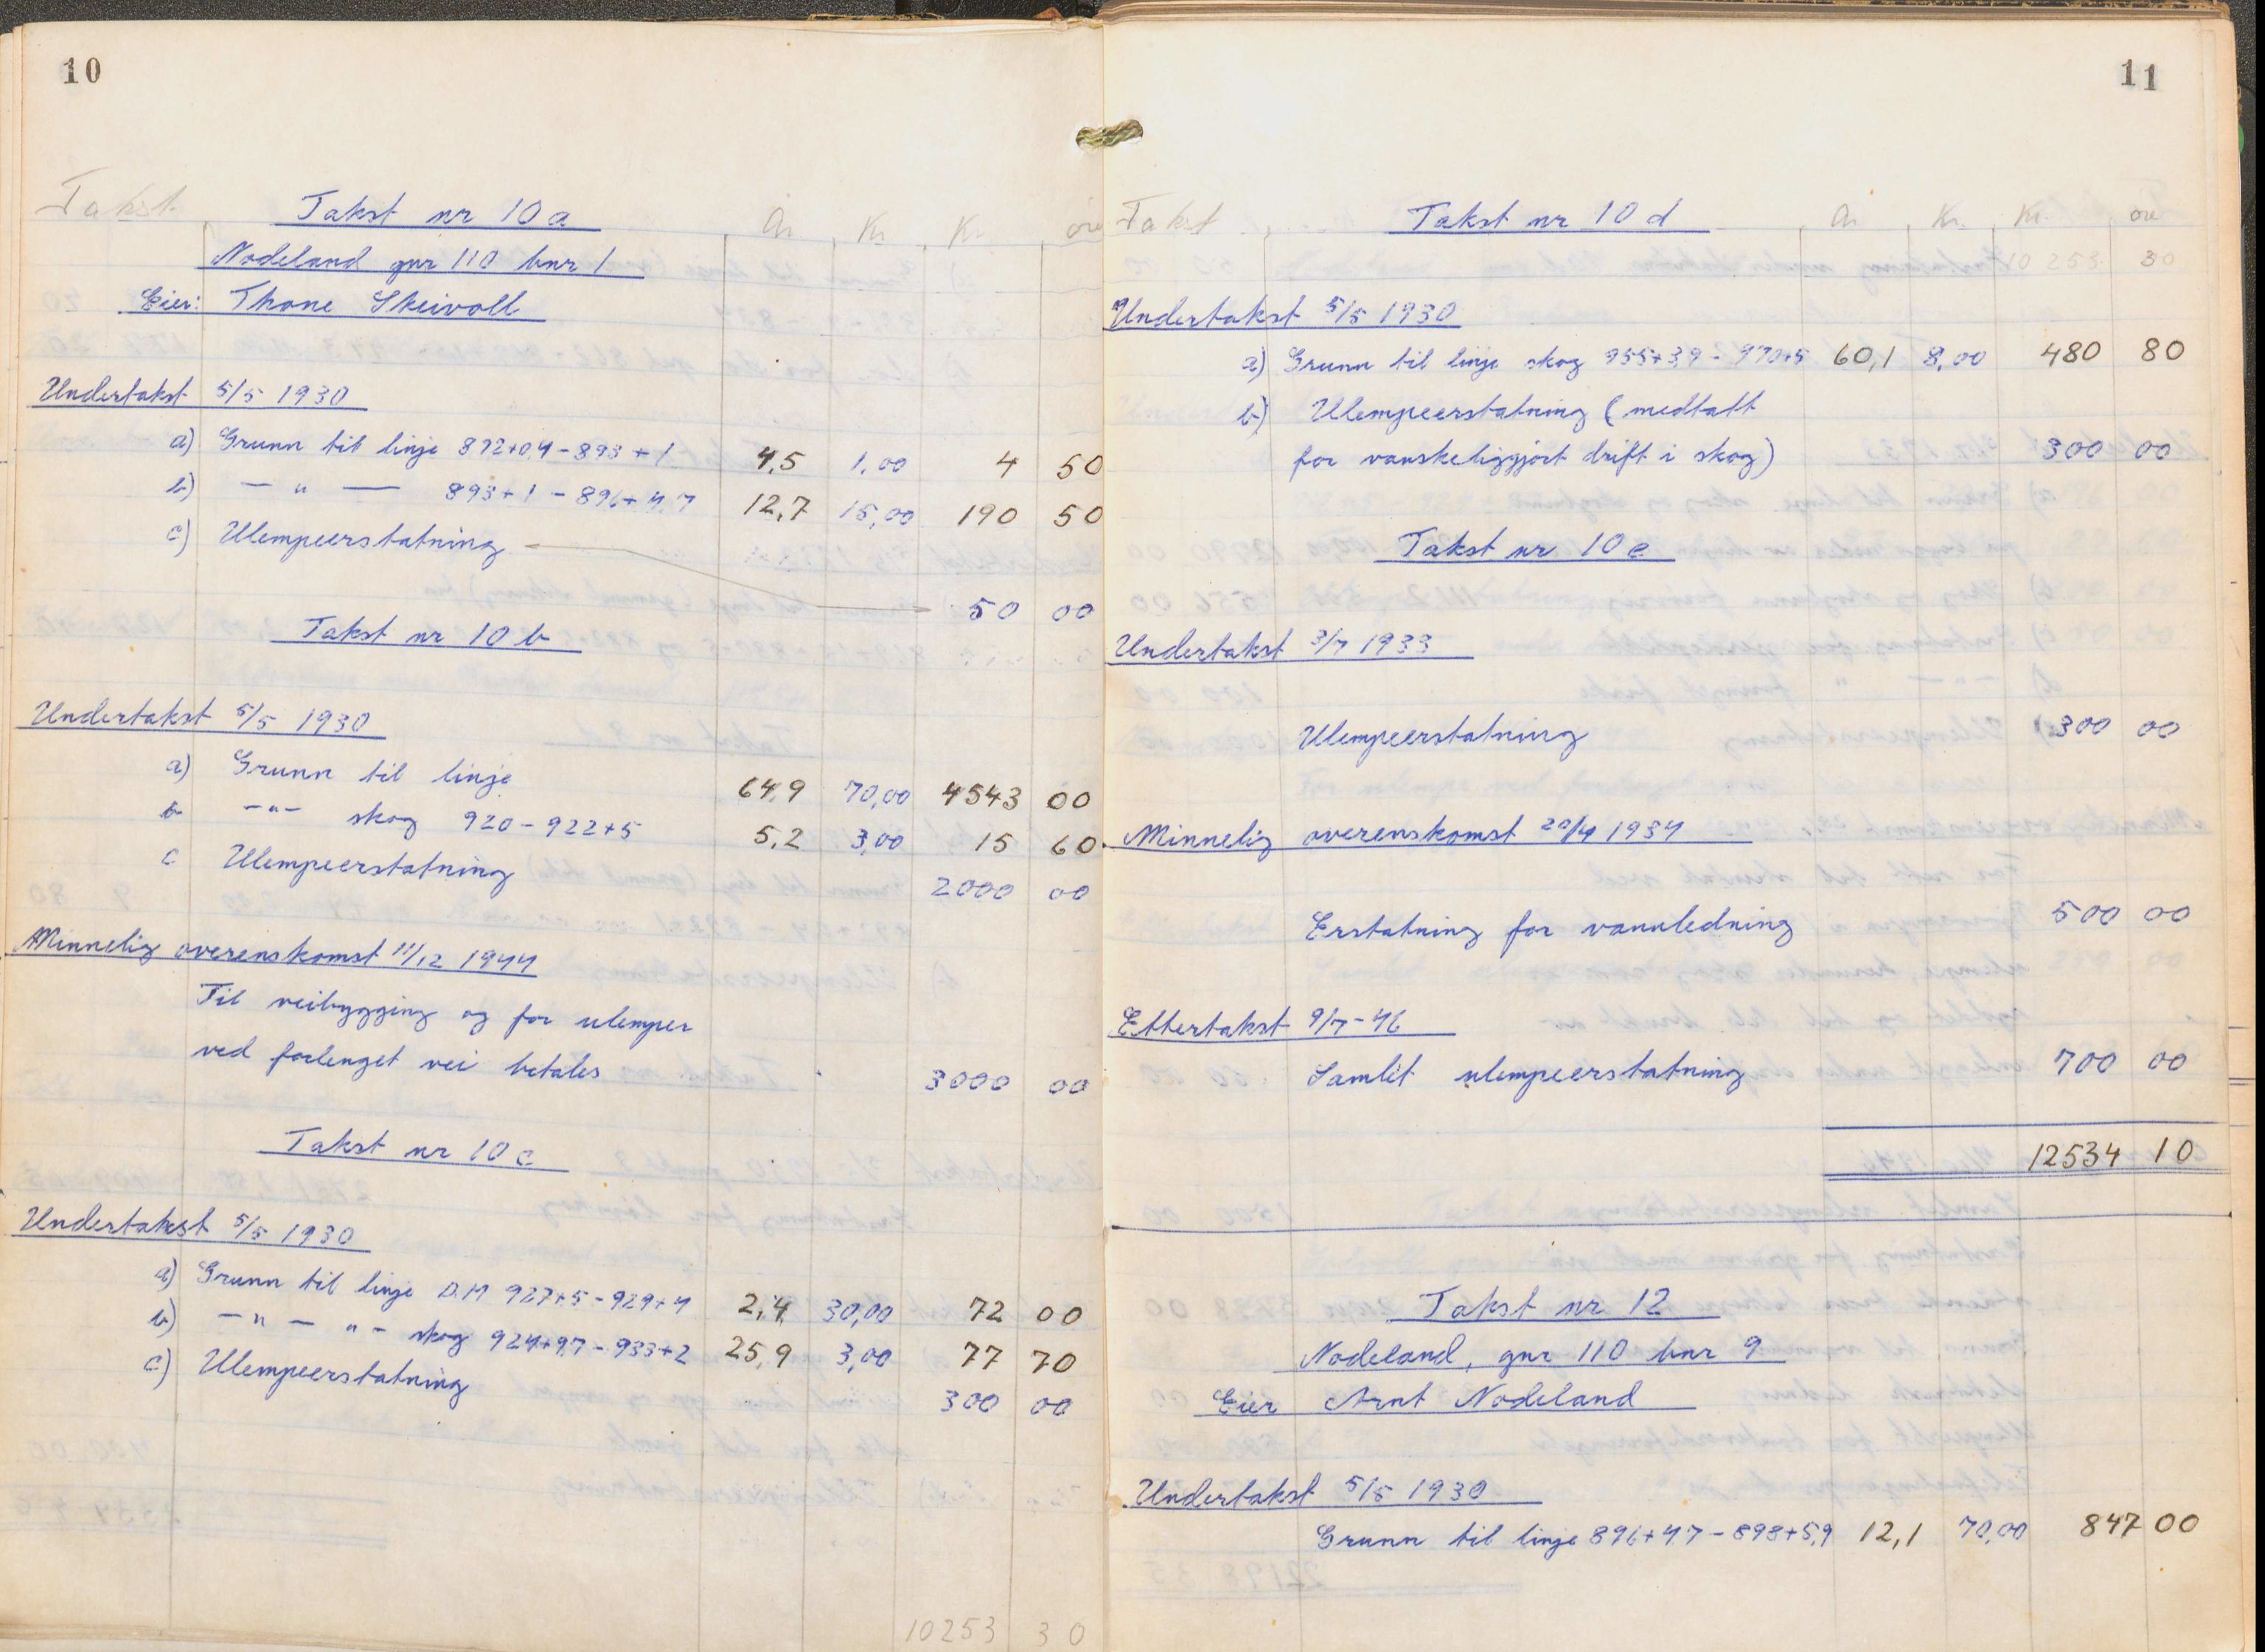 10
Takst Takst nr 10 a Ar Kr Kr øre
Nodeland gnr 110 bnr 1
Eier: Thone Skeivoll
Undertakst 5/5 1930
a) Grunn til linje 872+0,4 - 893 + 1 4,5 1,00 4 50
b) — " — 893 + 1 - 896 + 4,7 12,7 15,00 190 50
c) Ulempeerstatning 50 00
Takst nr 10 b
Undertakst 5/5 1930
a) Grunn til linje 64,9 70,00 4543 00
b -"- skog 920 - 922+5 5,2 3,00 15 60
c Ulempeerstatning 2000 00
Minnelig overenskomst 11/12 1944
Til veibygging og for ulemper
ved forlenget vei betales 3000 00
Takst nr 10 c
Undertakst 5/5 1930
a) Grunn til linje D.M 927+5 - 929+4 2,4 30,00 72 00
b) - " - " - skog 924+9,7 - 933+2 25,9 3,00 77 70
c) Ulempeerstatning 300 00
10253 30
11
Takst Takst nr 10 d Ar Kr. Kr. øre
10 253 30
Undertakst 5/5 1930
a) Grunn til linje skog 955+3,9 - 970+5 60,1 8,00 480 80
b) Ulempeerstatning (medtatt
for vanskeliggjort drift i skog) 300 00
Takst nr 10 e
Undertakst 3/7 1933
Ulempeerstatning 300 00
Minnelig overenskomst 20/4 1934
Erstatning for vannledning 500 00
Ettertakst 9/7-46
Samlet ulempeerstatning 700 00
12534 10
Takst nr 12
Nodeland, gnr 110 bnr 9
Eier Arnt Nodeland
Undertakst 5/5 1930
Grunn til linje 896+4,7 - 898+5,9 12,1 70,00 847 00